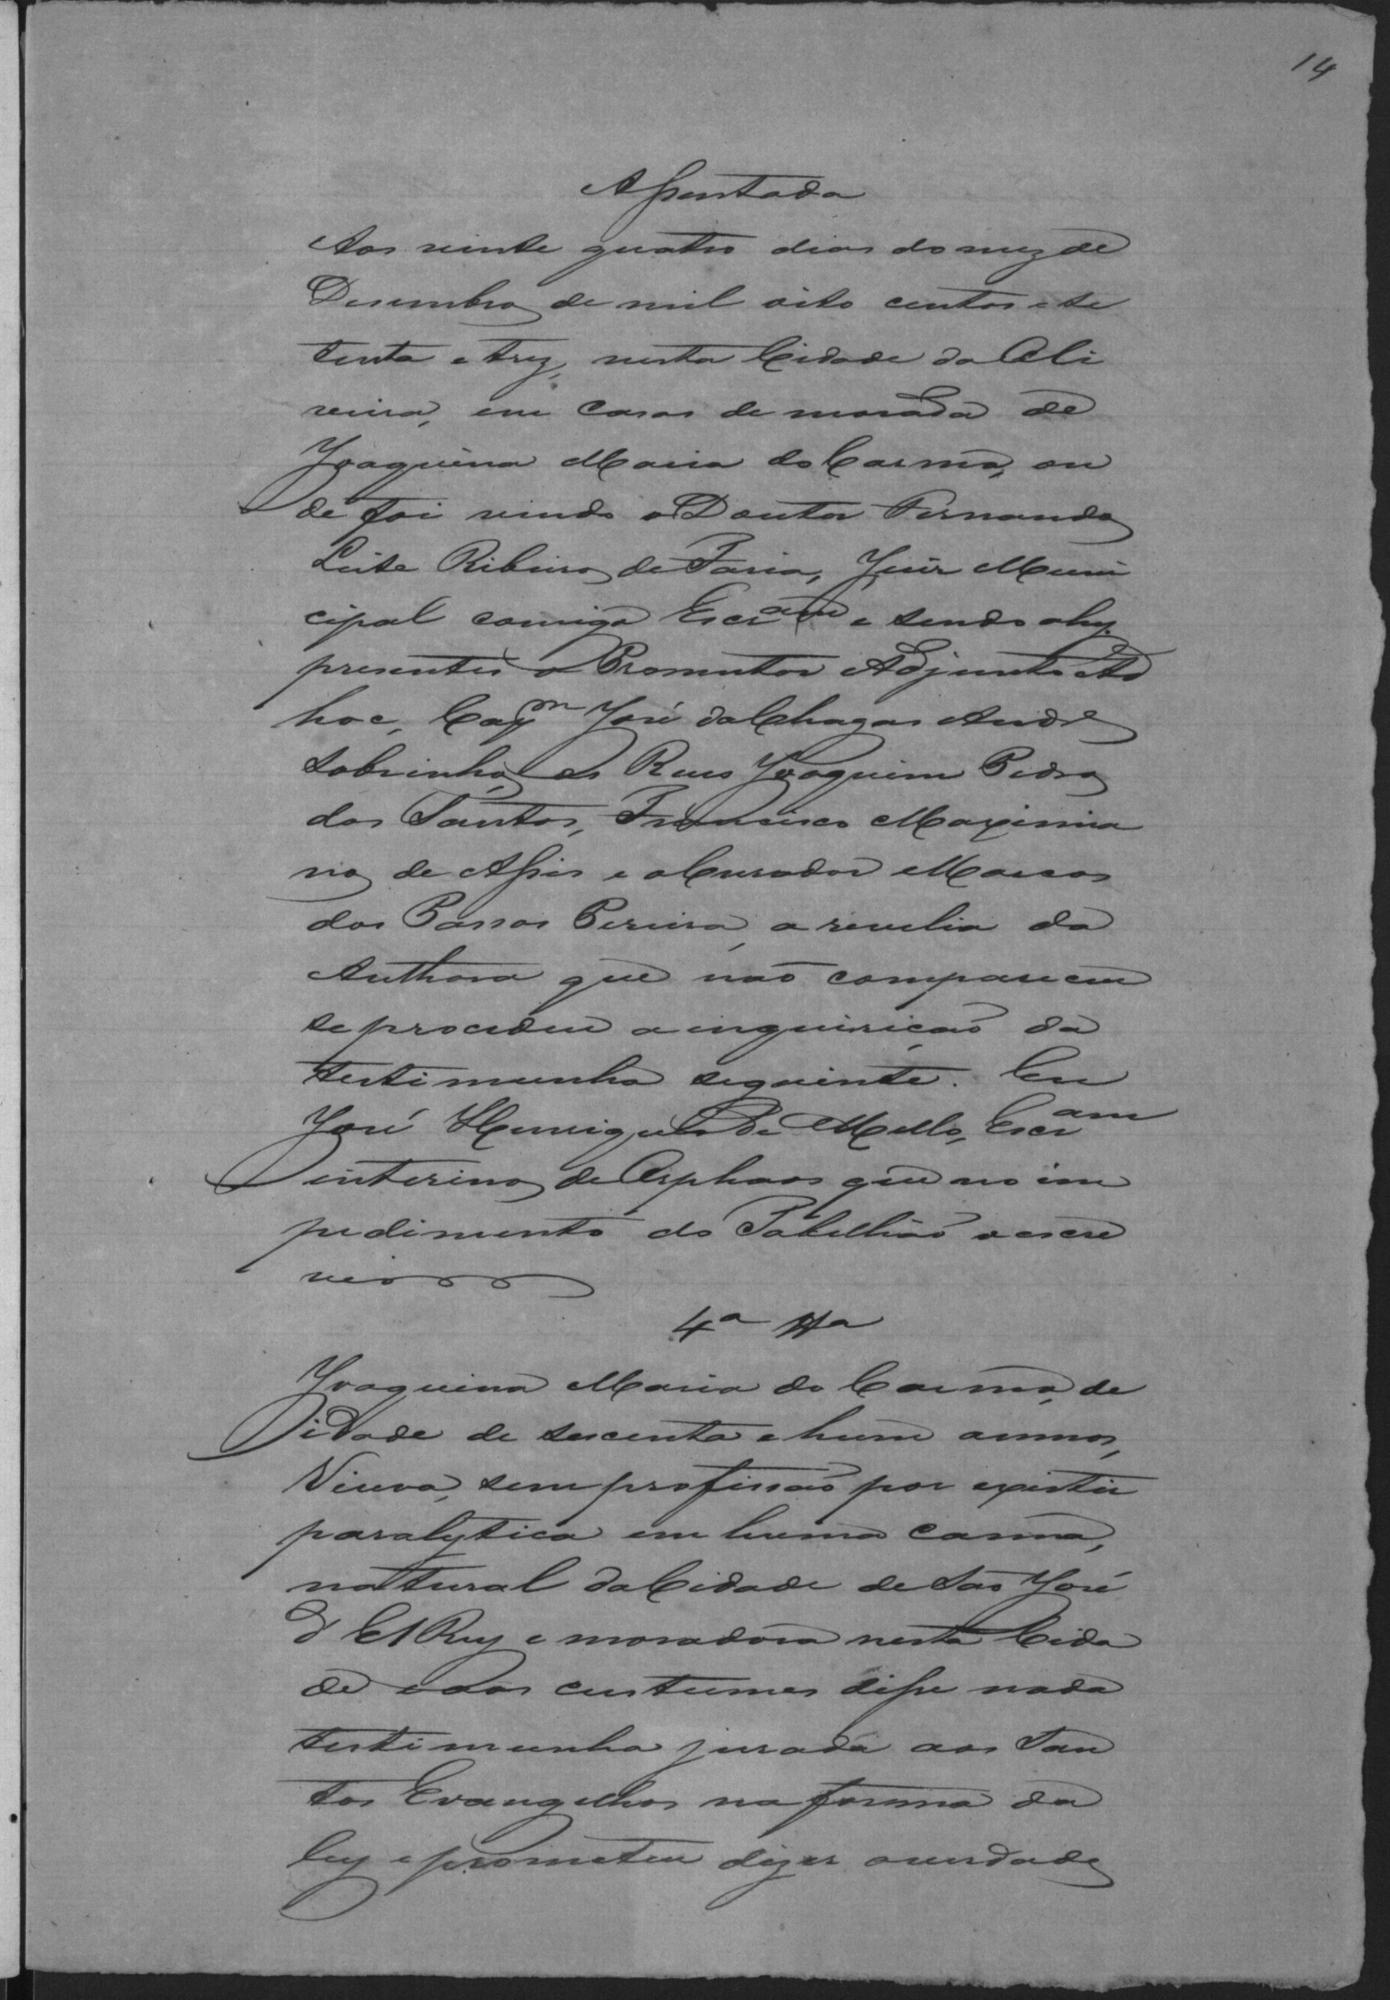 14
Assentada
Aos vinte quatro dias do mez de
Desembro de mil oito centos e se
tenta e trez, nesta Cidade da Oli
veira, em casas de morada de
Joaquina Maria do Carmo, on
de foi vindo o Doutor Fernando
Leite Ribeiro de Faria, Juiz Muni
cipal comigo Escram e sendo ahy
presentes o Promutor Adjunto Ad
hoc, Capm José das Chagas Andre
Sobrinho, os Reus Joaquim Pedro
dos Santos, Francisco Maximia
no de Assis e o Curador Marcos
dos Passos Pereira, a revelia da
Authora que não compareceu
se procedeu a inquirição da
testimunha seguinte. Eu
José Henriques de Mello, Escram
interino de Orphaos que no im
pedimento do Tabellião o escre
vi
4a tta
Joaquina Maria do Carmo, de
idade de secenta e hum annos,
Viuva, sem profissão por existir
paralytica em huma cama,
natural da Cidade de São José
d' El Rey e moradora nesta Cida
de e aos custumes disse nada
testimunha jurada aos San
tos Evangelhos na forma da
ley e prometeu dizer a verdade